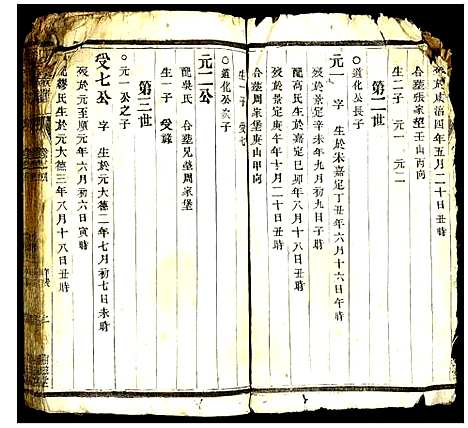 歿於咸治四年五月二十日丑時
合塟張家望王山丙向
生二子 元一 元二
第二世
○道化公長子
元一 字 生於宋嘉定丁丑年六月十六日午時
歿於景定辛未年九月初九日子時
配高氏生於嘉定己卯年八月十八日丑時
歿於景定庚午年十月二十日丑時
合塟周家堡庚山甲向
生一子 受七
○道化公次子
元二公
配吳氏 合塟兄塟周家堡
生一子 受蘇
第三世
○元一公之子
受七公 字 生於元大德二年七月初七日未時
歿於元至順元年六月初六日寅時
配繆氏生於元大德三年八月十八日丑時